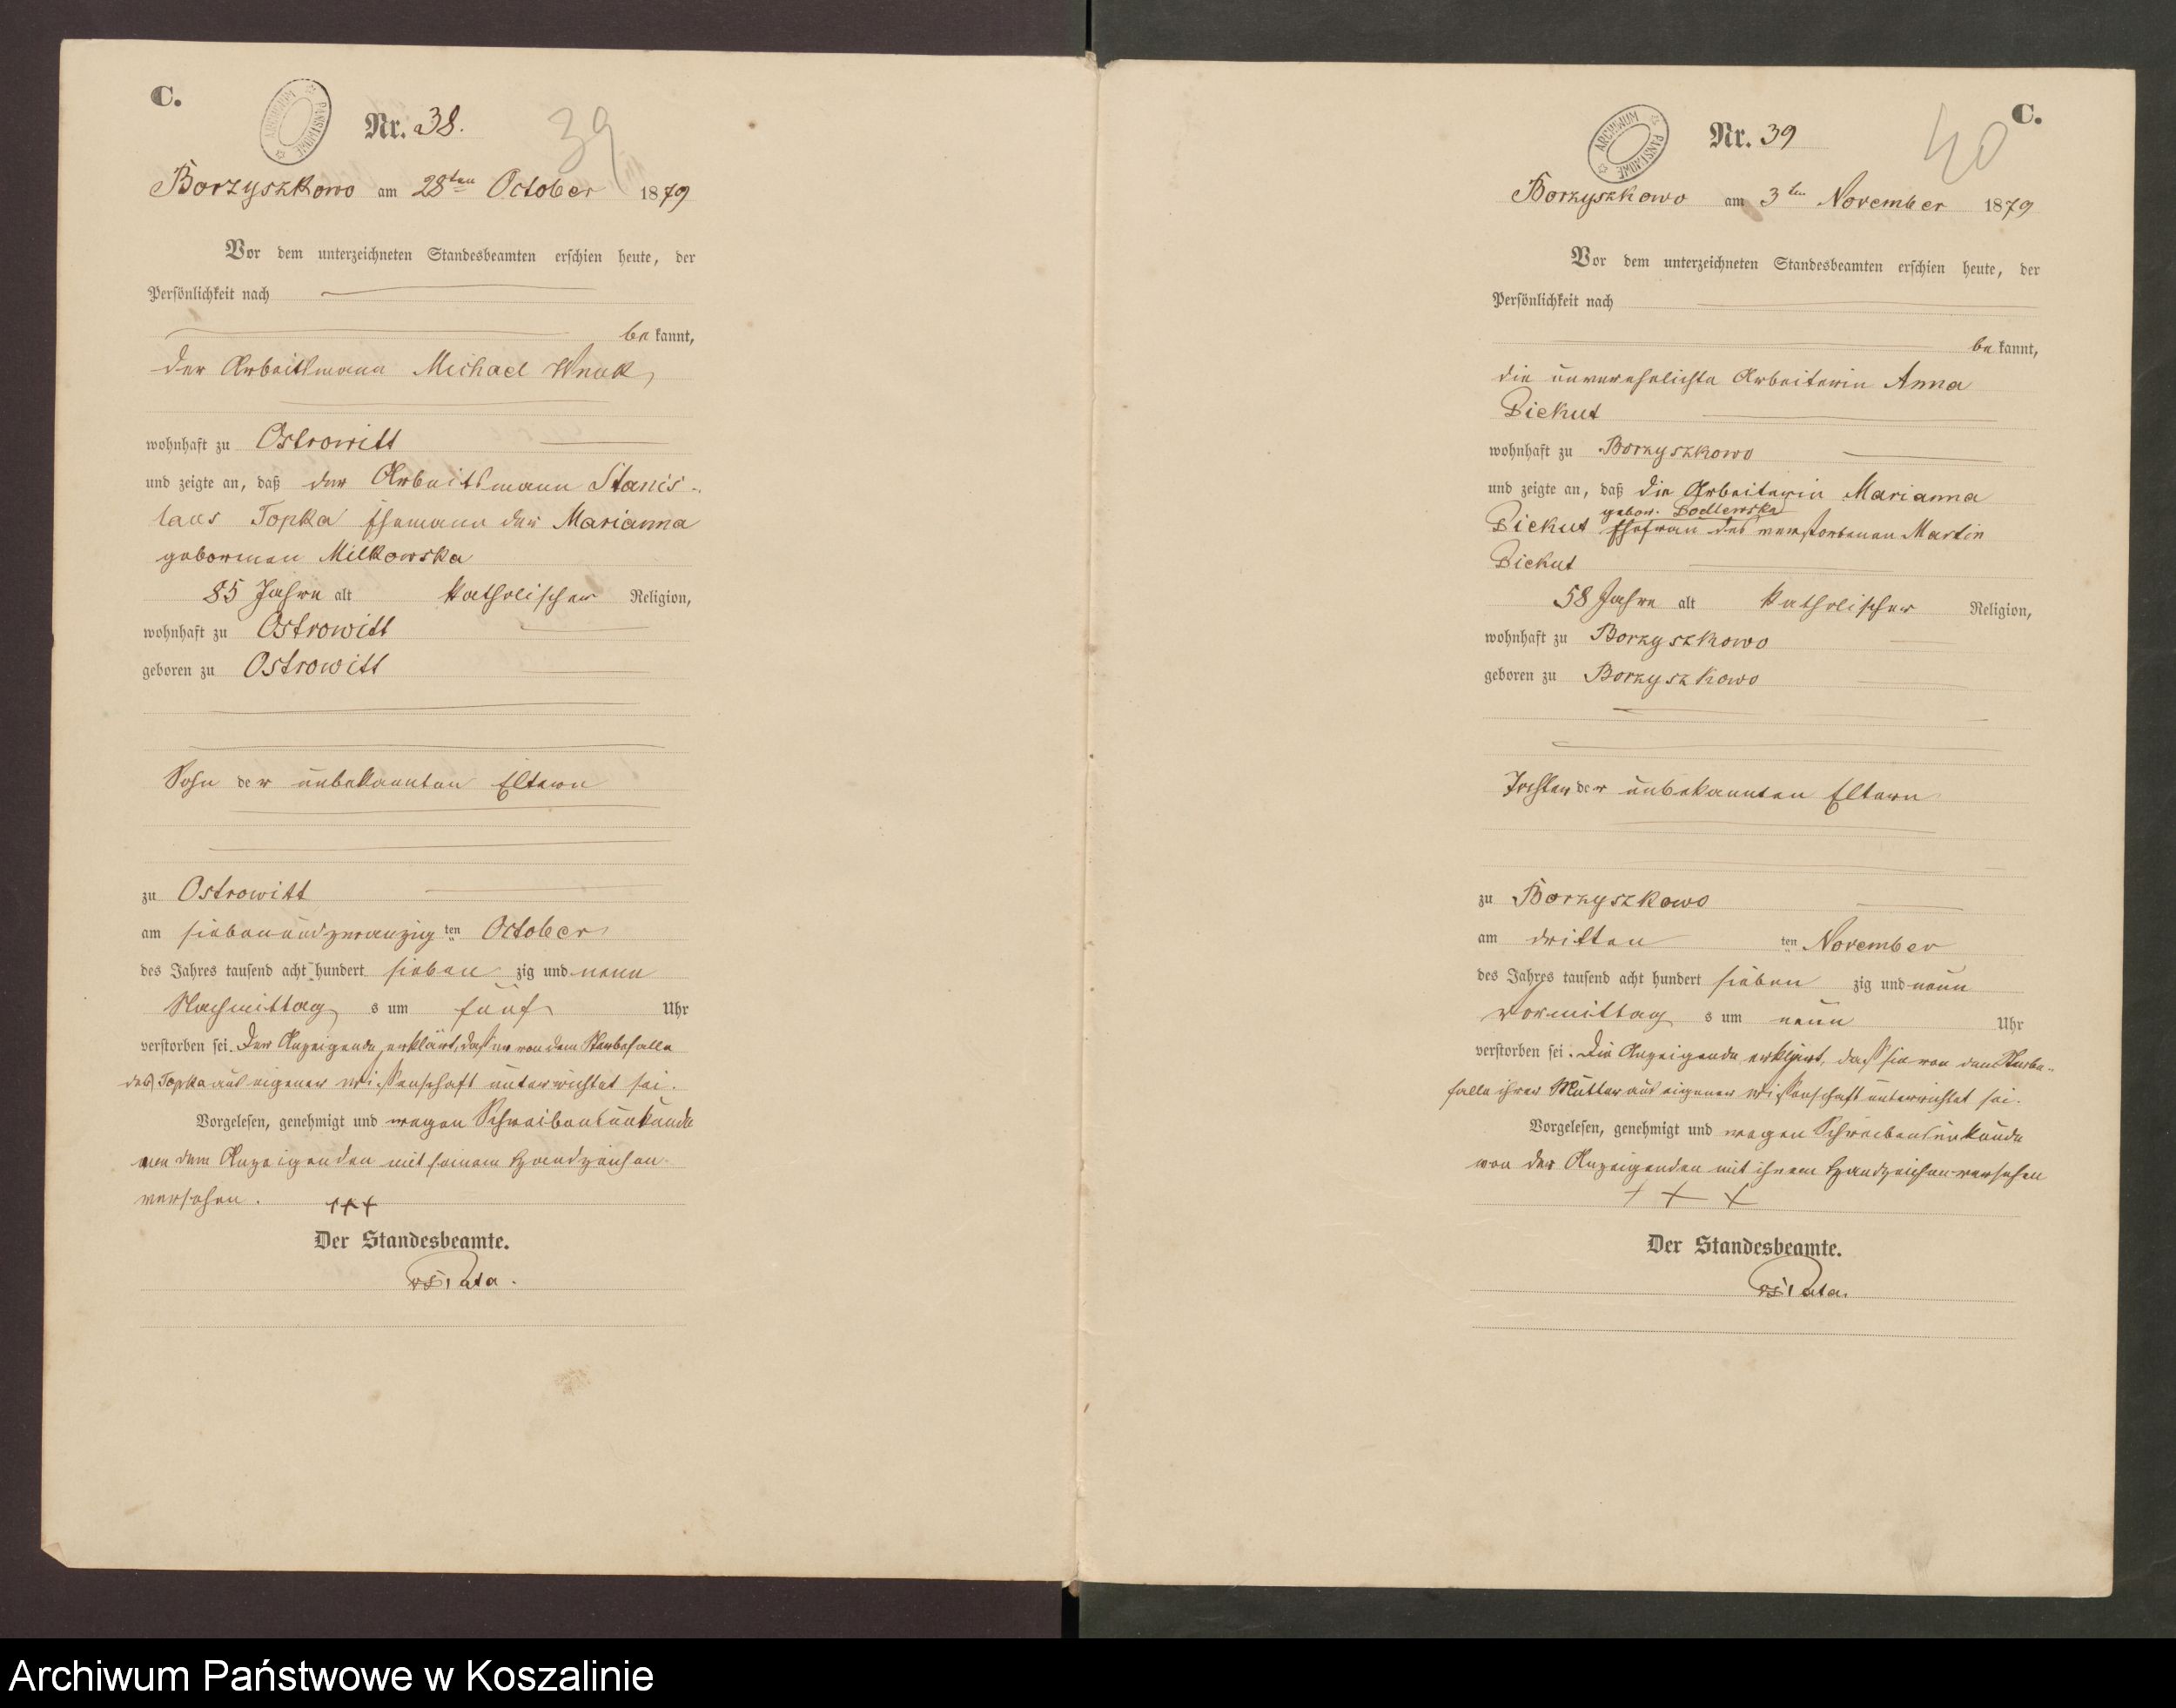 C.
ARCHIWUM PAŃSTWOWE
Nr. 38.
39
Borzyszkowo am 28ten October 1879
Vor dem unterzeichneten Standesbeamten erschien heute, der
Persönlichkeit nach
bekannt,
der Arbeitsmann Michael Wnuk,
wohnhaft zu Ostrowitt
und zeigte an, daß der Arbeitsmann Stanis-
laus Topka Ehemann der Marianna
geborenen Milkowska
85 Jahre alt katholischer Religion,
wohnhaft zu Ostrowitt
geboren zu Ostrowitt
Sohn der unbekannten Eltern
zu Ostrowitt
am siebenundzwanzig ten October
des Jahres tausend acht hundert sieben zig und neun
Nachmittag s um fünf Uhr
verstorben sei. Der Anzeigende erklärt, daß er von dem Sterbefalle
des Topka aus eigener Wissenschaft unterrichtet sei.
Vorgelesen, genehmigt und wegen Schreibensunkunde
von dem Anzeigenden mit seinem Handzeichen
versehen. +++
Der Standesbeamte.
C.
ARCHIWUM PAŃSTWOWE
Nr. 39
40
Borzyszkowo am 3ten November 1879
Vor dem unterzeichneten Standesbeamten erschien heute, der
Persönlichkeit nach
bekannt,
die unverehelichte Arbeiterin Anna
Diekut
wohnhaft zu Borzyszkowo
und zeigte an, daß die Arbeiterin Marianna
gebor. Dodlewska
Diekut Ehefrau des verstorbenen Martin
Diekut
58 Jahre alt katholischer Religion,
wohnhaft zu Borzyszkowo
geboren zu Borzyszkowo
Tochter der unbekannten Eltern
zu Borzyszkowo
am dritten ten November
des Jahres tausend acht hundert sieben zig und neun
Vormittag s um neun Uhr
verstorben sei. Die Anzeigende erklärt, daß sie von dem Sterbe-
falle ihrer Mutter aus eigener Wissenschaft unterrichtet sei.
Vorgelesen, genehmigt und wegen Schreibensunkunde
von der Anzeigenden mit ihrem Handzeichen versehen
+ + +
Der Standesbeamte.
Archiwum Państwowe w Koszalinie